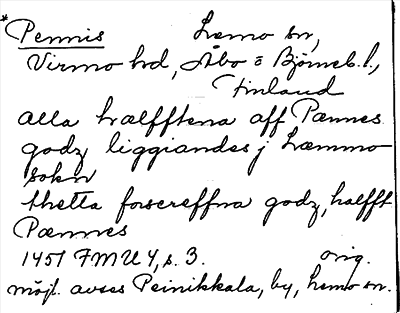 * Pennis Lemo sn,
Virmo hrd, Åbo = Björneb. l.,
Finland
alla hælfftena aff Pænnes
godz liggiandes j Læmmo
sokn
thetta forscreffna godz, halfft
Pænnes
1451 FMU 4, s. 3. orig.
möjl. avses Peinikkala, by, Lemo sn.